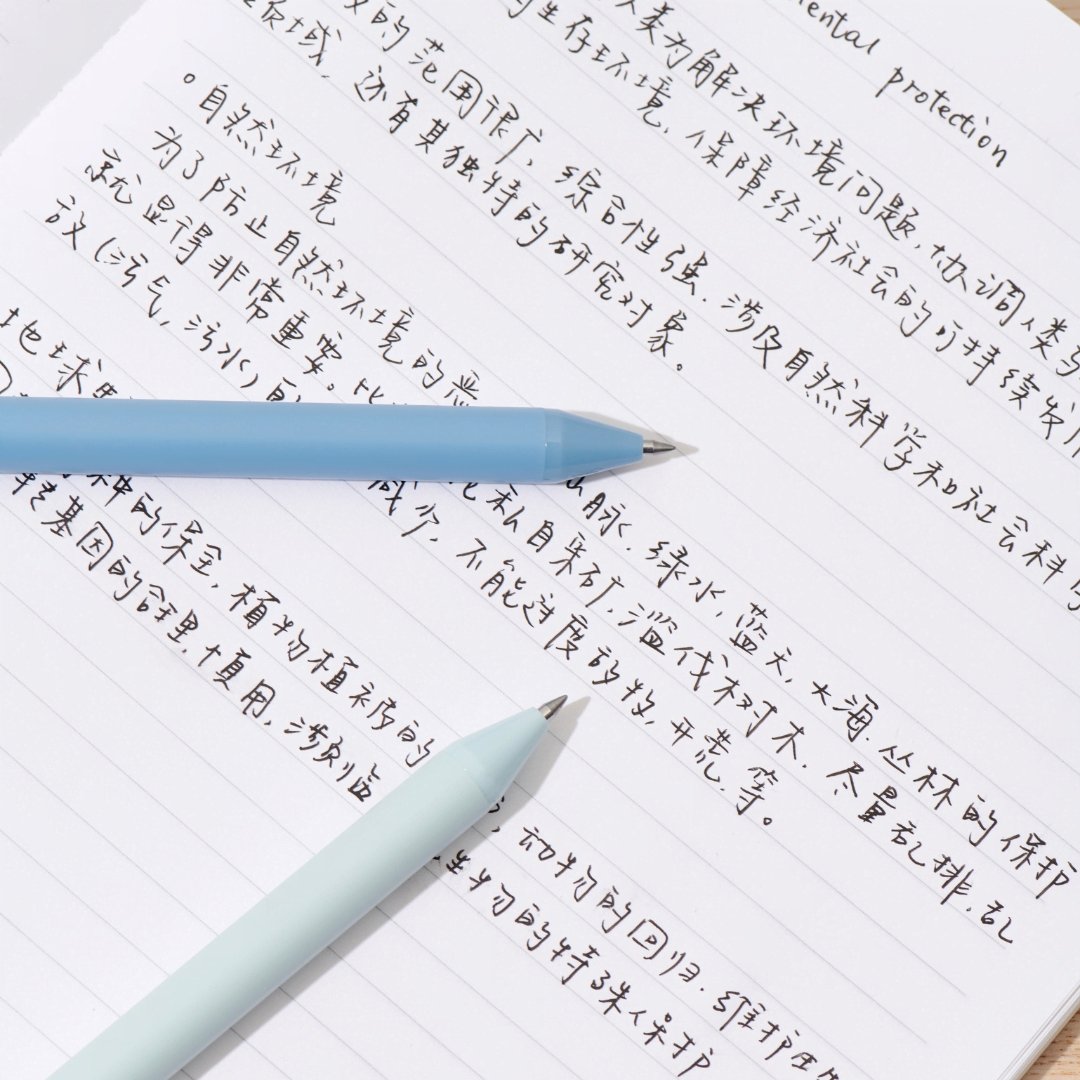 mental protection
人类为解决环境问题,协调人类与
的生存环境,保障经济社会的可持续发
的范围很广,综合性强.涉及自然科学和社会科学
领域,还有其独特的研究对象。
。自然环境
为了防止自然环境的恶 脉.绿水,蓝天,大海.丛林的保护
就显得非常重要。比 私自采矿,滥伐树木.尽量乱排.乱
放(污气,污水) 减少.不能过度放牧,开荒.等。
地球
种的保全,植物植被的 动物的回归.维护
转基因的合理,慎用, 生物的特殊保护